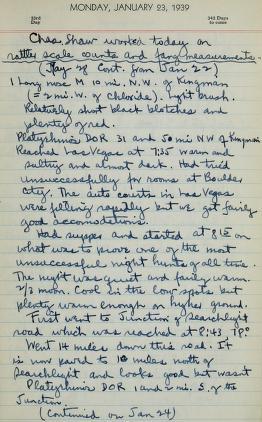 MONDAY, JANUARY 23, 1939
23rd Day
342 Days to come
Chas Shaw worked today on
rattler scale counts and fang measurements.
(May 28 Cont. from Jan 22)
1 Long nose M 10 mi. N.W. of Kingman
(= 2 mi. W. of Chloride). Light brush.
Relatively short black blotches and
plenty of red.
Platyrhinus DOR 31 and 50 mi N.W. of Kingman
Reached Vegas at 7:35 warm and
sultry and almost dark. Had tried
unsuccessfully for rooms at Boulder
City. The auto courts in Las Vegas
were filling rapidly but we got fairly
good accomodations.
Had supper and started at 8:15 on
what was to prove one of the most
unsuccessful night hunts of all time.
The night was quiet and fairly warm.
2/3 moon. Cool in the low spots but
plenty warm enough on higher ground.
First went to Junction of Searchlight
road which was reached at 8:43 78°
Went 14 miles down this road. It
is now paved to 16 miles north of
Searchlight and looks good but wasn't
Platyrhinus DOR 1 and 2 mi. S. of the
Junction.
(Continued on Jan 24)